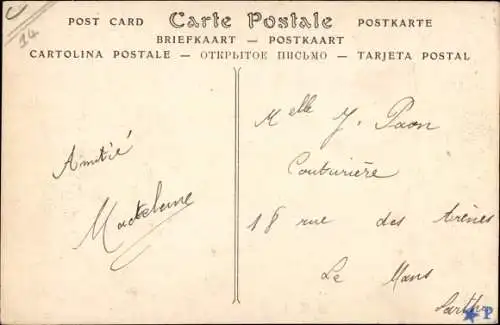 14
POST CARD Carte Postale POSTKARTE
BRIEFKAART — POSTKAART
CARTOLINA POSTALE — ОТКРЫТОЕ ПИСЬМО — TARJETA POSTAL
Amitié
Madeleine
Melle J. Paon
Couturière
18 rue des Arènes
Le Mans
Sarthe
P